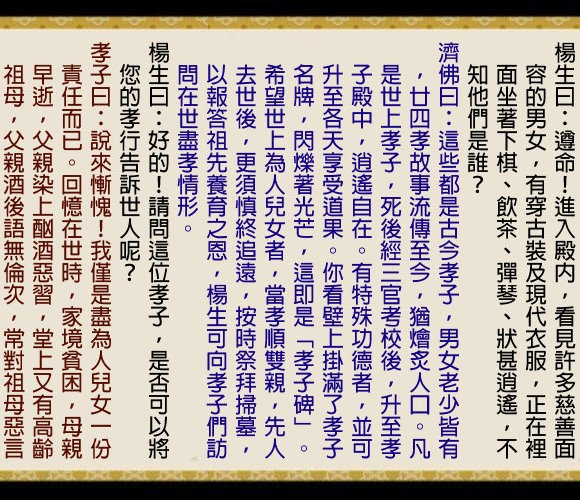 楊生曰：遵命！進入殿内，看見許多慈善面
容的男女，有穿古裝及現代衣服，正在裡
面坐著下棋、飲茶、彈琴、狀甚逍遙，不
知他們是誰？
濟佛曰：這些都是古今孝子，男女老少皆有
，廿四孝故事流傳至今，猶膾炙人口。凡
是世上孝子，死後經三官考校後，升至孝
子殿中，逍遙自在。有特殊功德者，並可
升至各天享受道果。你看壁上掛滿了孝子
名牌，閃爍著光芒，這即是「孝子碑」。
希望世上為人兒女者，當孝順雙親，先人
去世後，更須慎終追遠，按時祭拜掃墓，
以報答祖先養育之恩，楊生可向孝子們訪
問在世盡孝情形。
楊生曰：好的！請問這位孝子，是否可以將
您的孝行告訴世人呢？
孝子曰：說來慚愧！我僅是盡為人兒女一份
責任而已。回憶在世時，家境貧困，母親
早逝，父親染上酗酒惡習，堂上又有高齡
祖母，父親酒後語無倫次，常對祖母惡言